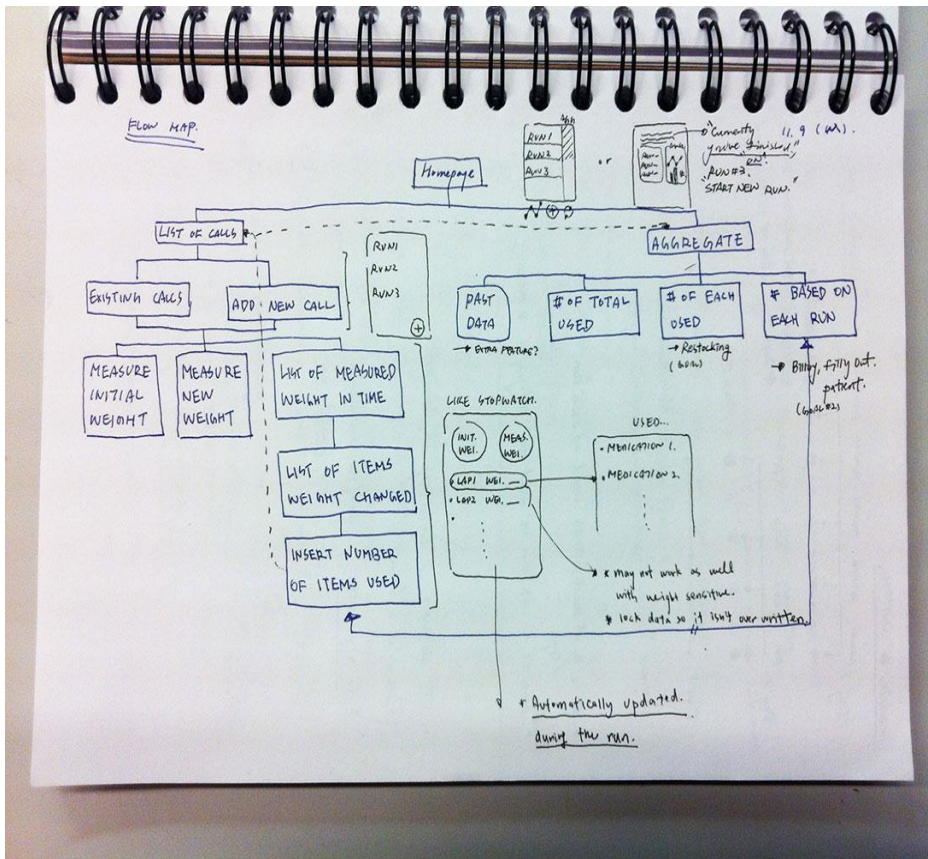 FLOW MAP.
11. 9 (W).
Homepage
RUN1
RUN2
RUN3
or
"Currently
you've finished"
"RUN#3."
"START NEW RUN."
LIST OF CALLS
AGGREGATE
EXISTING CALLS
ADD NEW CALL
RUN1
RUN2
RUN3
PAST
DATA
→ EXTRA FEATURE?
# OF TOTAL
USED
# OF EACH
USED
→ Restocking
# BASED ON
EACH RUN
→ Billing, filling out.
patient.
(GOAL #2)
MEASURE
INITIAL
WEIGHT
MEASURE
NEW
WEIGHT
LIST OF MEASURED
WEIGHT IN TIME
LIST OF ITEMS
WEIGHT CHANGED
INSERT NUMBER
OF ITEMS USED
LIKE STOPWATCH.
INIT.
WEI.
MEAS.
WEI.
• LAP1 WEI. __
• LAP2 WEI. __
USED...
• MEDICATION 1.
• MEDICATION 2.
* may not work as well
with weight sensitive.
* lock data so it isn't over written.
* Automatically updated.
during the run.